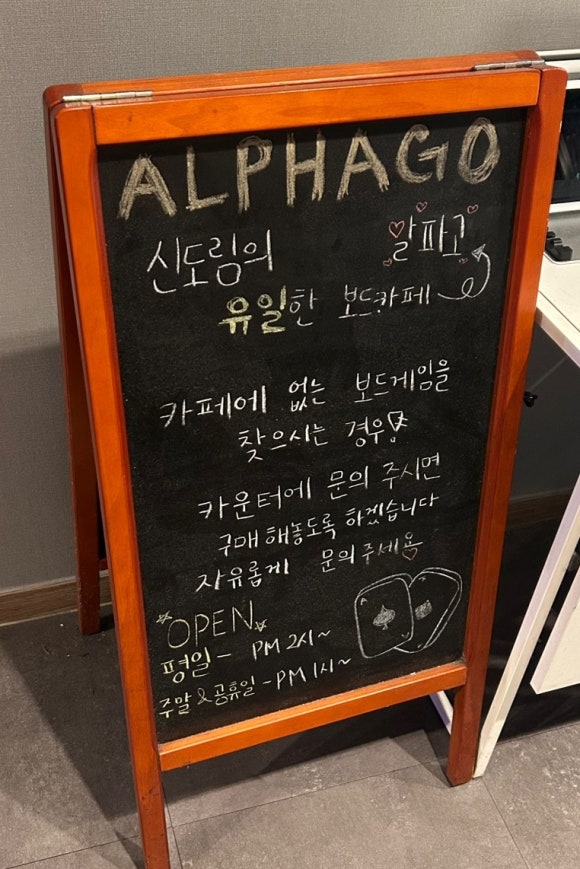 ALPHAGO
신도림의 알파고
유일한 보드카페
카페에 없는 보드게임을
찾으시는 경우!
카운터에 문의 주시면
구매해놓도록 하겠습니다
자유롭게 문의주세용
OPEN
평일 - PM 2시~
주말 & 공휴일 - PM 1시~
A